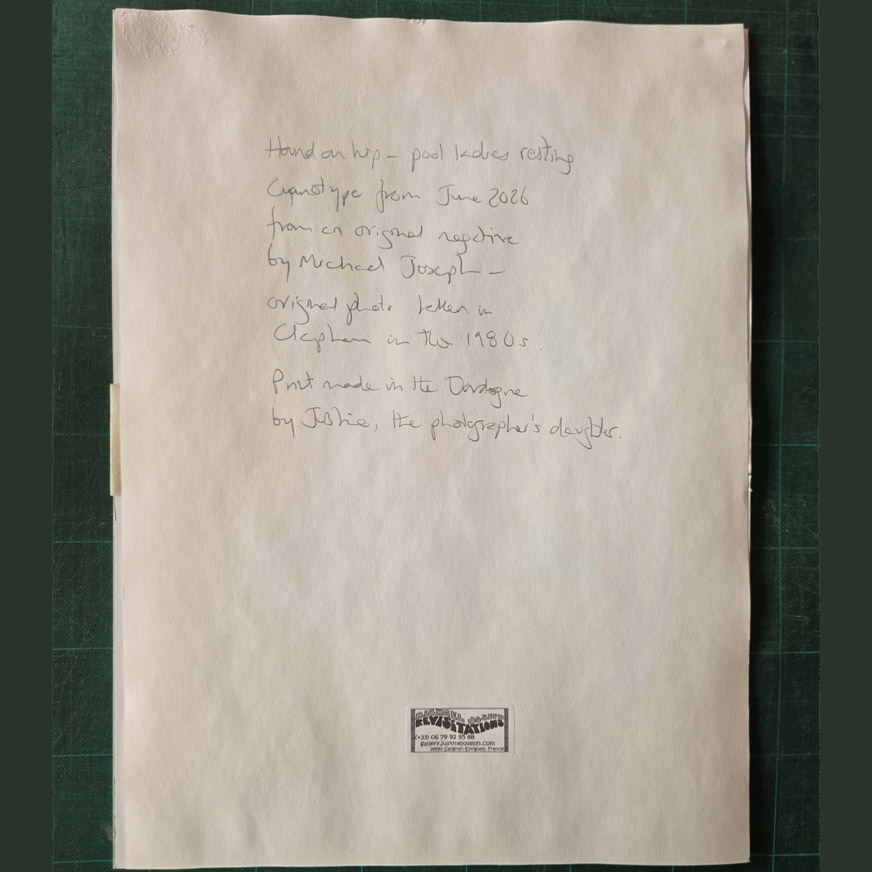 Hand on hip – pool ladies resting
Cyanotype from June 2026
from an original negative
by Michael Joseph –
original photo taken in
Clapham in the 1980s.
Print made in the Dordogne
by Justine, the photographer's daughter.
MICHAEL JOSEPH
REVISITATIONS
(+33) 06 79 92 95 88
gallery.justinejoseph.com
France